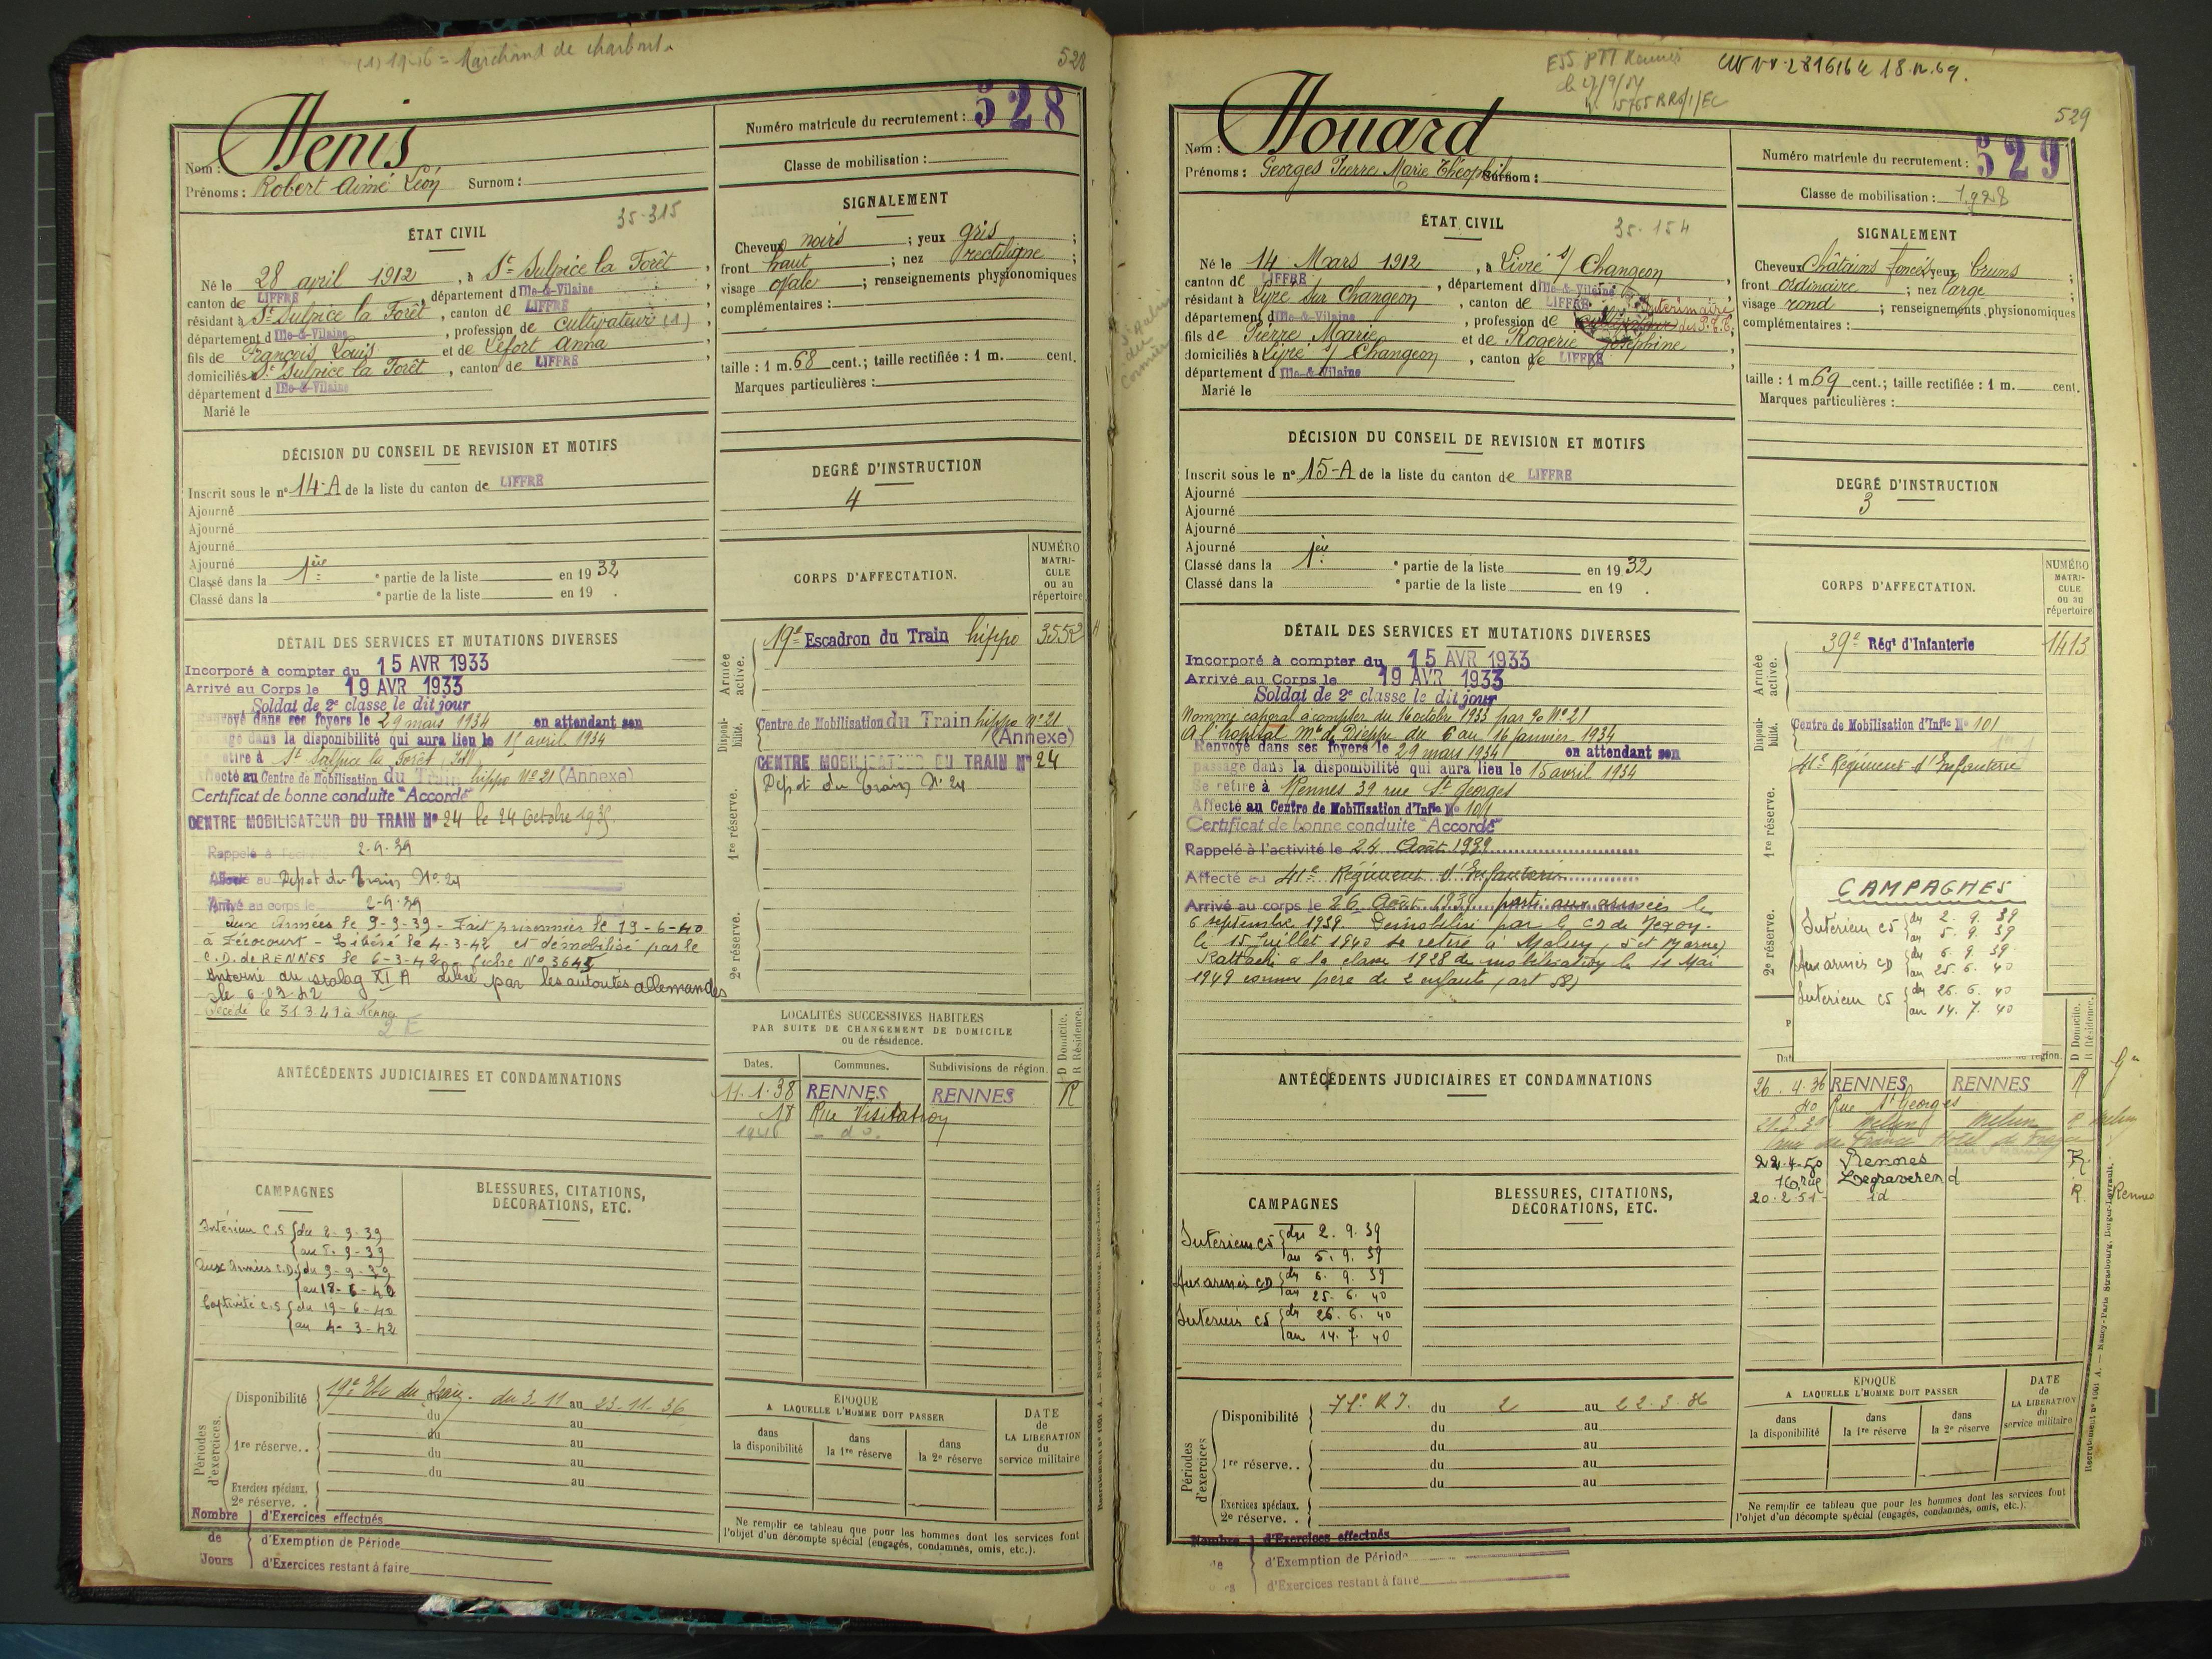 (1) 1946 = Marchand de charbon
528
Nom : Henis
Prénoms : Robert Aimé Léon Surnom :
Numéro matricule du recrutement : 528
Classe de mobilisation :
35-315
ÉTAT CIVIL
Né le 28 avril 1912, à St Sulpice la Forêt,
canton de LIFFRÉ, département d Ille-&-Vilaine
résidant à St Sulpice la Forêt, canton de LIFFRÉ
département d Ille-&-Vilaine, profession de cultivateur (1),
fils de François Louis et de Lefort Anna
domiciliés St Sulpice la Forêt, canton de LIFFRÉ
département d Ille-&-Vilaine
Marié le
SIGNALEMENT
Cheveux noirs ; yeux gris ;
front haut ; nez rectiligne ;
visage ovale ; renseignements physionomiques
complémentaires :
taille : 1 m. 68 cent.; taille rectifiée : 1 m. cent.
Marques particulières :
DÉCISION DU CONSEIL DE REVISION ET MOTIFS
Inscrit sous le n° 14-A de la liste du canton de LIFFRÉ
Ajourné
Ajourné
Ajourné
Ajourné
Classé dans la 1ère e partie de la liste en 19 32
Classé dans la e partie de la liste en 19 .
DEGRÉ D'INSTRUCTION
4
DÉTAIL DES SERVICES ET MUTATIONS DIVERSES
Incorporé à compter du 15 AVR 1933
Arrivé au Corps le 19 AVR 1933
Soldat de 2e classe le dit jour
Renvoyé dans ses foyers le 29 mars 1934 en attendant son
passage dans la disponibilité qui aura lieu le 15 avril 1934
Se retire à St Sulpice la Forêt (I&V)
Affecté au Centre de Mobilisation du Train hippo N° 21 (Annexe)
Certificat de bonne conduite "Accordé"
CENTRE MOBILISATEUR DU TRAIN N° 24 le 24 Octobre 193
Rappelé à 2-9-39
Affecté au Depot du Train N° 24
Arrivé au corps le 2-9-39
aux Armées le 9-9-39 - Fait prisonnier le 19-6-40
à - Libéré le 4-3-42 et démobilisé par le
C.D. de RENNES le 6-3-42 - fiche N° 3645
Interné au stalag XI A libéré par les autorités allemandes
le 6-03-42
Décédé le 31.3.49 à Rennes
CORPS D'AFFECTATION.
NUMÉRO MATRI-CULE ou au répertoire
Armée active.
19e Escadron du Train hippo 3552
Disponi-bilité.
Centre de Mobilisation du Train hippo N° 21
(Annexe)
CENTRE MOBILISATEUR DU TRAIN N° 24
Depot du Train N° 24
1re réserve.
2e réserve.
LOCALITÉS SUCCESSIVES HABITÉES
PAR SUITE DE CHANGEMENT DE DOMICILE
ou de résidence.
D Domicile. R Résidence.
Dates. Communes. Subdivisions de région.
11.1.38 RENNES RENNES R
18 Rue Visitation
1946 - do -
ANTÉCÉDENTS JUDICIAIRES ET CONDAMNATIONS
CAMPAGNES
Intérieur C.S { du 2-9-39
au 8-9-39
aux Armées C.D. { du 9-9-39
au 18-6-40
Captivité C.S { du 19-6-40
au 4-3-42
BLESSURES, CITATIONS,
DÉCORATIONS, ETC.
Périodes d'exercices.
Disponibilité 19e Esc du Train. du 3.11 au 23.11.36
du au
du au
1re réserve.. du au
du au
Exercices spéciaux.
2e réserve. .
Nombre de Jours
d'Exercices effectués
d'Exemption de Période
d'Exercices restant à faire
ÉPOQUE
A LAQUELLE L'HOMME DOIT PASSER
dans la disponibilité
dans la 1re réserve
dans la 2e réserve
DATE de LA LIBÉRATION du service militaire
Ne remplir ce tableau que pour les hommes dont les services font
l'objet d'un décompte spécial (engagés, condamnés, omis, etc.).
ESS PTT Rennes
N. 15765 RRS/1/EC
529
Nom : Houard
Prénoms : Georges Pierre Marie Théophile Surnom :
Numéro matricule du recrutement : 529
Classe de mobilisation : 1928
35-154
ÉTAT CIVIL
Né le 14 Mars 1912, à Livré s/ Changeon
canton de LIFFRÉ, département d Ille-&-Vilaine
résidant à Livré sur Changeon, canton de LIFFRÉ
département d Ille-&-Vilaine, profession de cultivateur Intérimaire des P.T.T.
fils de Pierre Marie et de Rogerie Joséphine
domiciliés à Livré s/ Changeon, canton de LIFFRÉ
département d Ille-&-Vilaine
Marié le
St Aubin du Cormier
SIGNALEMENT
Cheveux Châtains foncés yeux bruns ;
front ordinaire ; nez large ;
visage rond ; renseignements physionomiques
complémentaires :
taille : 1 m 69 cent.; taille rectifiée : 1 m. cent.
Marques particulières :
DÉCISION DU CONSEIL DE REVISION ET MOTIFS
Inscrit sous le n° 15-A de la liste du canton de LIFFRÉ
Ajourné
Ajourné
Ajourné
Ajourné
Classé dans la 1ère e partie de la liste en 19 32
Classé dans la e partie de la liste en 19 .
DEGRÉ D'INSTRUCTION
3
DÉTAIL DES SERVICES ET MUTATIONS DIVERSES
Incorporé à compter du 15 AVR 1933
Arrivé au Corps le 19 AVR 1933
Soldat de 2e classe le dit jour
Nommé caporal à compter du 16 octobre 1933 par N° 21
A l'hôpital Mre de Dieppe du 6 au 16 janvier 1934
Renvoyé dans ses foyers le 29 mars 1934 en attendant son
passage dans la disponibilité qui aura lieu le 15 avril 1934
Se retire à Rennes 39 rue St Georges
Affecté au Centre de Mobilisation d'Infie N° 101
Certificat de bonne conduite "Accordé"
Rappelé à l'activité le 24 Août 1939
Affecté au 41e Régiment d'Infanterie
Arrivé au corps le 26 Août 1939 parti aux armées le
6 septembre 1939. Démobilisé par le
le 15 Juillet 1940 se retire à Melun (S et Marne)
Rattaché à la classe 1928 de mobilisation le 11 Mai
1949 comme père de 2 enfants (art 58)
CORPS D'AFFECTATION.
NUMÉRO MATRI-CULE ou au répertoire
Armée active.
39e Régt d'Infanterie 1413
Disponi-bilité.
Centre de Mobilisation d'Infie N° 101
41e Régiment d'Infanterie
1re réserve.
2e réserve.
CAMPAGNES
Intérieur CS { du 2. 9. 39
au 5. 9. 39
Aux armées CD { du 6. 9. 39
au 25. 6. 40
Intérieur CS { du 26. 6. 40
au 14. 7. 40
D Domicile. R Résidence.
26.4.36 RENNES RENNES R
40 Rue St Georges
Melun Melun R Melun
22-4-50 Rennes R
16 rue Legraverend
20-2-51 id R Rennes
ANTÉCÉDENTS JUDICIAIRES ET CONDAMNATIONS
CAMPAGNES
Intérieur CS { du 2. 9. 39
au 5. 9. 39
Aux armées CD { du 6. 9. 39
au 25. 6. 40
Intérieur CS { du 26. 6. 40
au 14. 7. 40
BLESSURES, CITATIONS,
DÉCORATIONS, ETC.
Périodes d'exercices
Disponibilité 71e R.I. du 2 au 22.3.36
du au
du au
1re réserve.. du au
du au
Exercices spéciaux.
2e réserve. .
Nombre de Jours
d'Exercices effectués
d'Exemption de Période
d'Exercices restant à faire
ÉPOQUE
A LAQUELLE L'HOMME DOIT PASSER
dans la disponibilité
dans la 1re réserve
dans la 2e réserve
DATE de LA LIBÉRATION du service militaire
Ne remplir ce tableau que pour les hommes dont les services font
l'objet d'un décompte spécial (engagés, condamnés, omis, etc.).